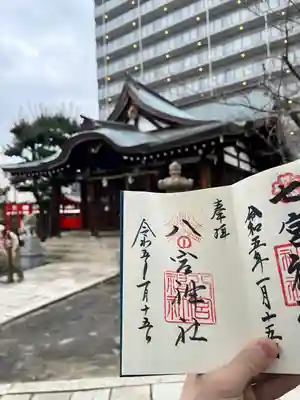 七宮神
令和五年一月十五
奉拝
八宮神社
令和五年一月十五日